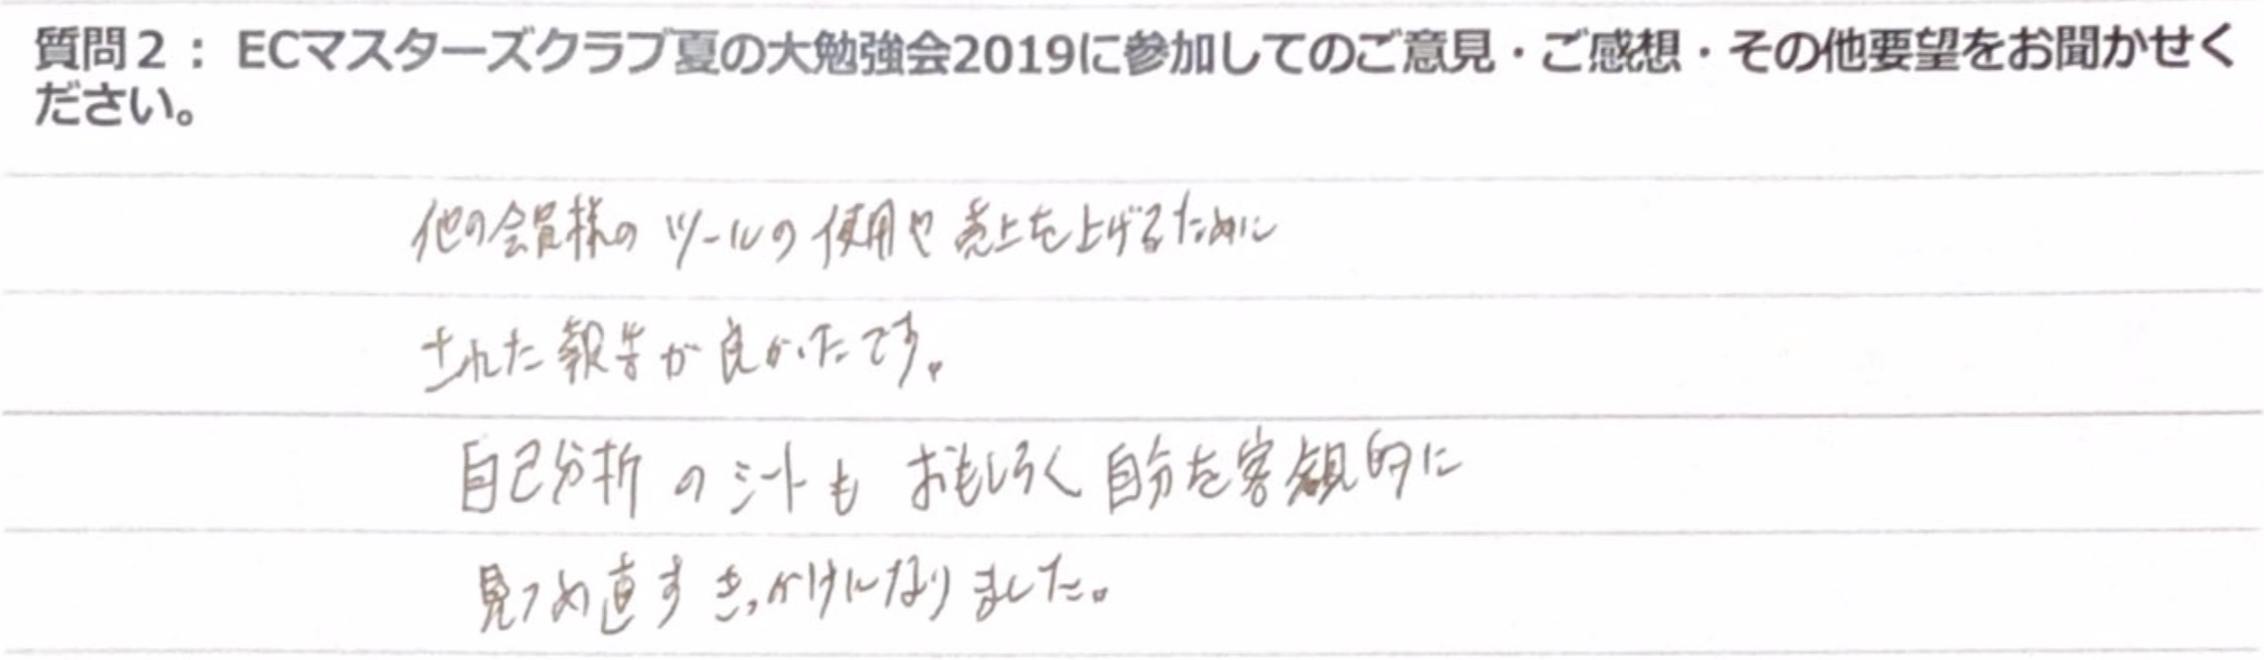 質問2：ECマスターズクラブ夏の大勉強会2019に参加してのご意見・ご感想・その他要望をお聞かせく
ださい。
他の会員様のツールの使用や売上を上げるために
された報告が良かったです。
自己分析のシートもおもしろく自分を客観的に
見つめ直すきっかけになりました。